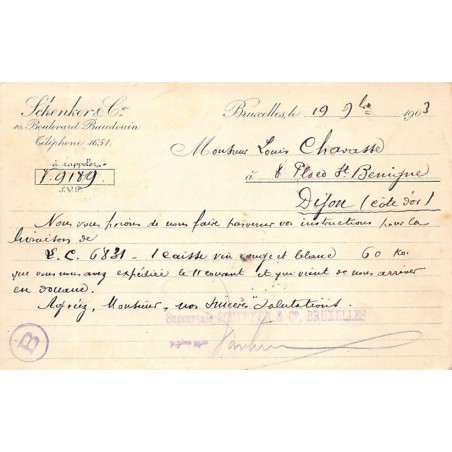 Schenker & Co
10. Boulevard Baudouin
Téléphone 1651.
à rappeler
V. 9189
S.V.P.
Bruxelles, le 19 9bre 1903
Monsieur Louis Chavasse
à 8 Place St Benigne
Dijon (côte d'or)
Nous vous prions de nous faire parvenir vos instructions pour la
livraison de
L. C. 6831 - 1 caisse vin rouge et blanc 60 ko.
que vous nous avez expédiée le 11 courant et que vient de nous arriver
en douane.
Agréez, Monsieur, nos sincères salutations.
Succursale SCHENKER & Co, BRUXELLES
B